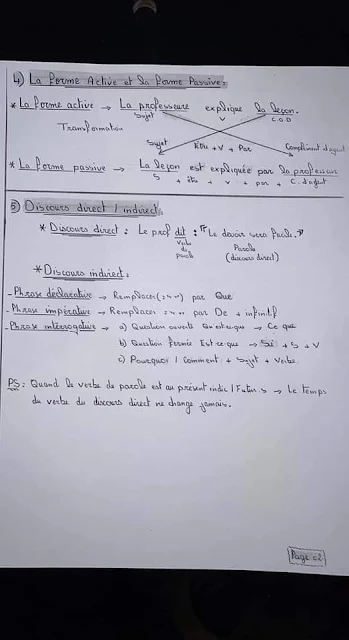 4) La forme Active et la forme Passive:
* La forme active → La professeure explique la leçon.
Sujet V C.O.D
Transformation
Sujet être + V + Par Complément d'agent
* La forme passive → La leçon est expliquée par la professeur
S + être + V + par + C. d'agent
5) Discours direct / indirect:
* Discours direct: Le prof dit : « Le devoir sera facile. »
Verbe de parole
Parole (discours direct)
* Discours indirect:
- Phrase déclarative → Remplacer (: « ») par Que
- Phrase impérative → Remplacer : « » par De + infinitif
- Phrase interrogative → a) Question ouverte Qu'est-ce-que → Ce que
b) Question fermée Est-ce-que → Si + S + V
c) Pourquoi / Comment + Sujet + Verbe.
PS: Quand le verbe de parole est au présent indic / Futur s → Le temps
du verbe du discours direct ne change jamais.
Page 02